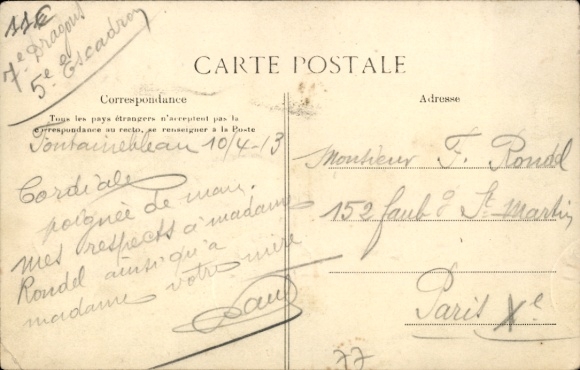 11€
7e Dragons
5e Escadron
CARTE POSTALE
Correspondance
Tous les pays étrangers n'acceptent pas la
correspondance au recto, se renseigner à la Poste
Fontainebleau 10/4-13
Cordiale
poignée de main.
mes respects à madame
Rondel ainsi qu'à
madame votre mère
Paul
Adresse
Monsieur F. Rondel
152 faubg St-Martin
Paris Xe
77